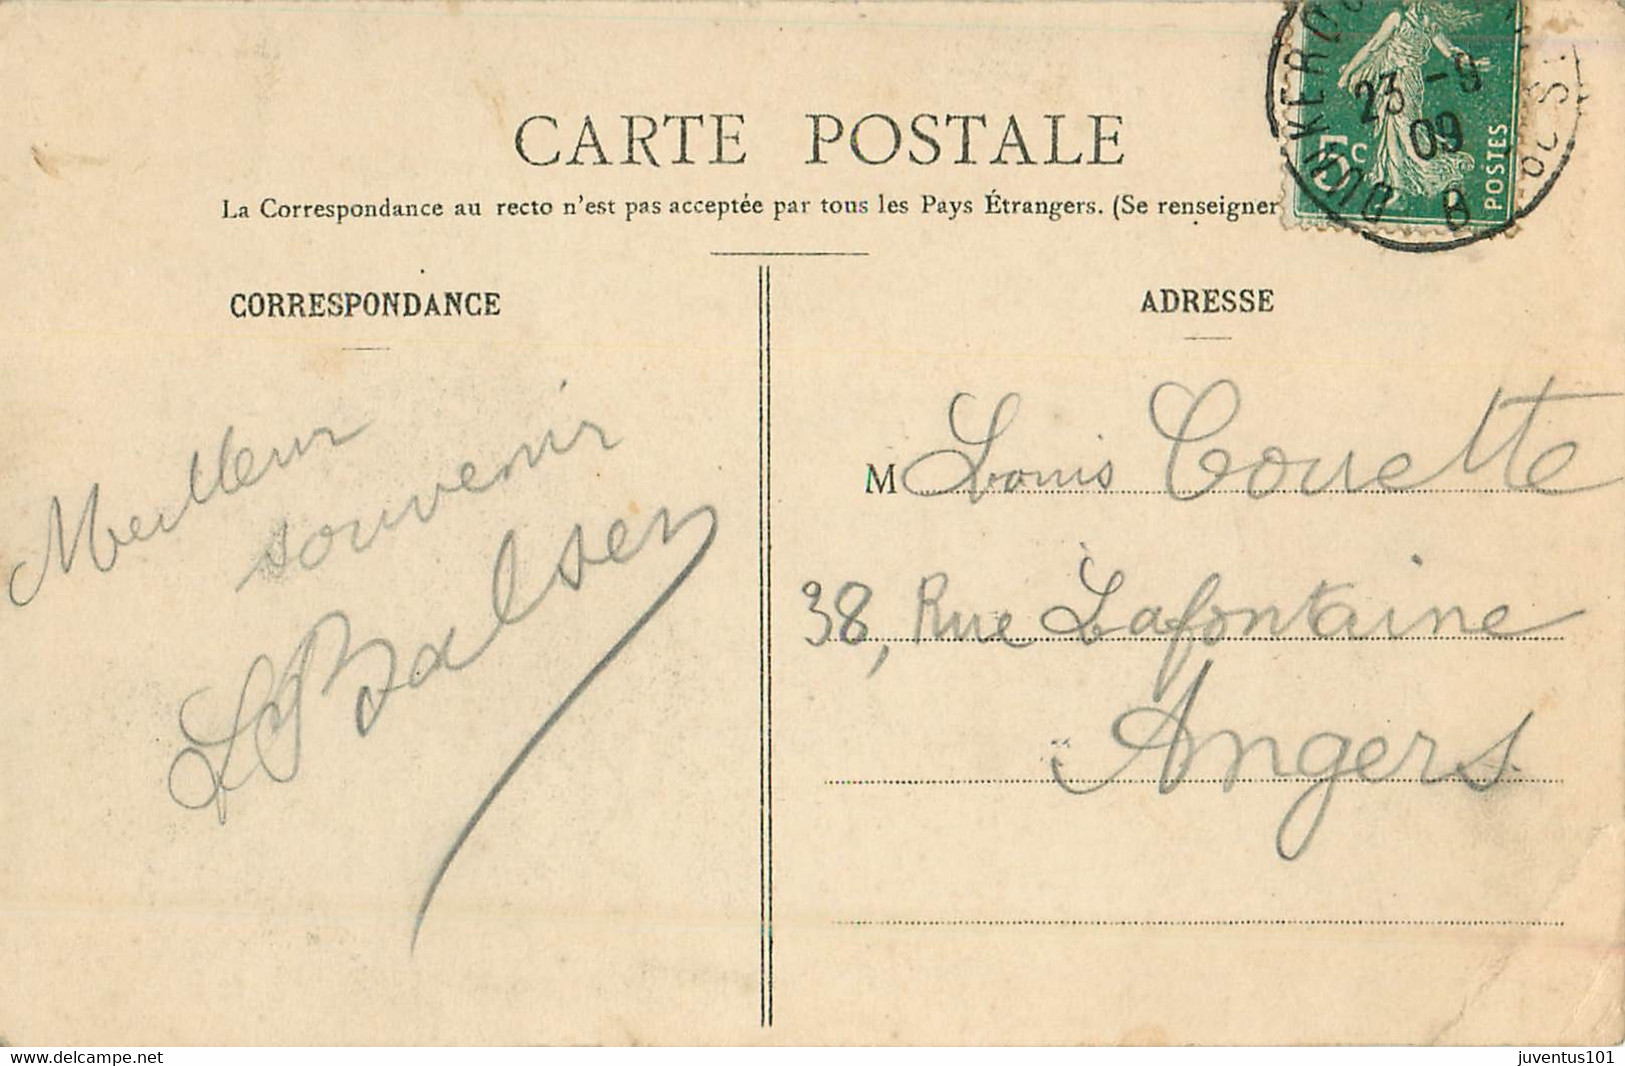 CARTE POSTALE
La Correspondance au recto n'est pas acceptée par tous les Pays Étrangers. (Se renseigner
CORRESPONDANCE
ADRESSE
Meilleur
souvenir
M Louis Couette
38, Rue Lafontaine
Angers
5c
POSTES
23 - 9
09
8
www.delcampe.net
juventus101